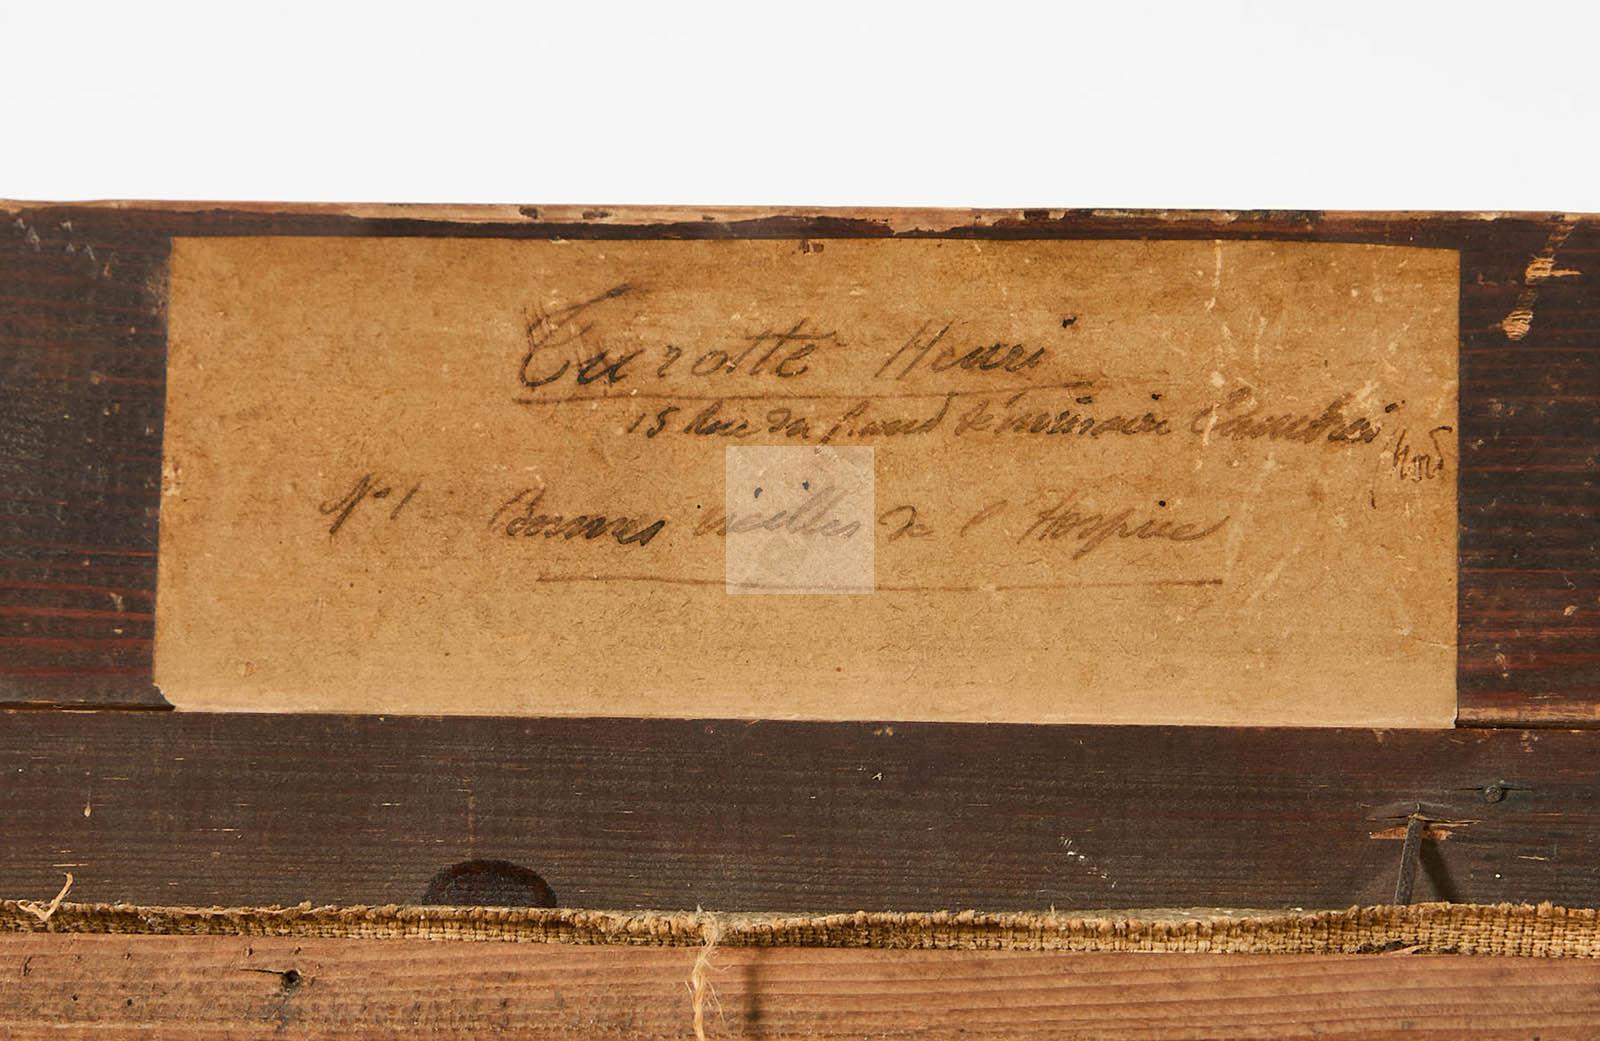 Turotte Henri
15 Rue du Grand Séminaire Cambrai
Nord
N° 1 Bonnes vieilles de l'Hospice